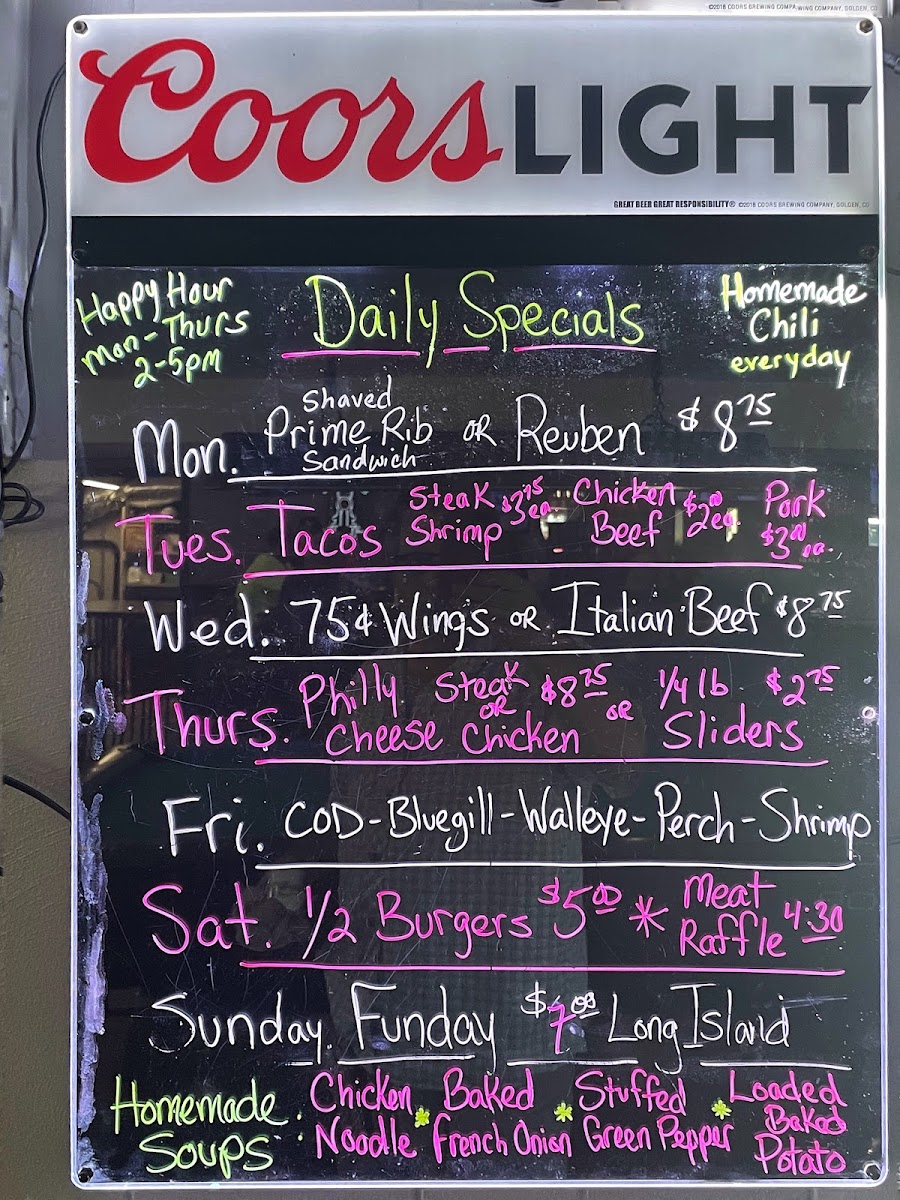 ©2018 COORS BREWING COMPA
WING COMPANY, GOLDEN, CO
Coors LIGHT
GREAT BEER GREAT RESPONSIBILITY® ©2018 COORS BREWING COMPANY, GOLDEN, CO
Happy Hour
Mon-Thurs
2-5pm
Daily Specials
Homemade
Chili
everyday
Mon. Shaved Prime Rib Sandwich OR Reuben $8.75
Tues. Tacos Steak Shrimp $3.75 ea. Chicken Beef $2.00 ea. Pork $3.00 ea.
Wed. 75¢ Wings OR Italian Beef $8.75
Thurs. Philly Cheese Steak OR Chicken $8.75 OR 1/4 lb Sliders $2.75
Fri. COD-Bluegill-Walleye-Perch-Shrimp
Sat. 1/2 Burgers $5.00 * Meat Raffle 4:30
Sunday. Funday $7.00 Long Island
Homemade Soups: Chicken Noodle * Baked French Onion * Stuffed Green Pepper * Loaded Baked Potato